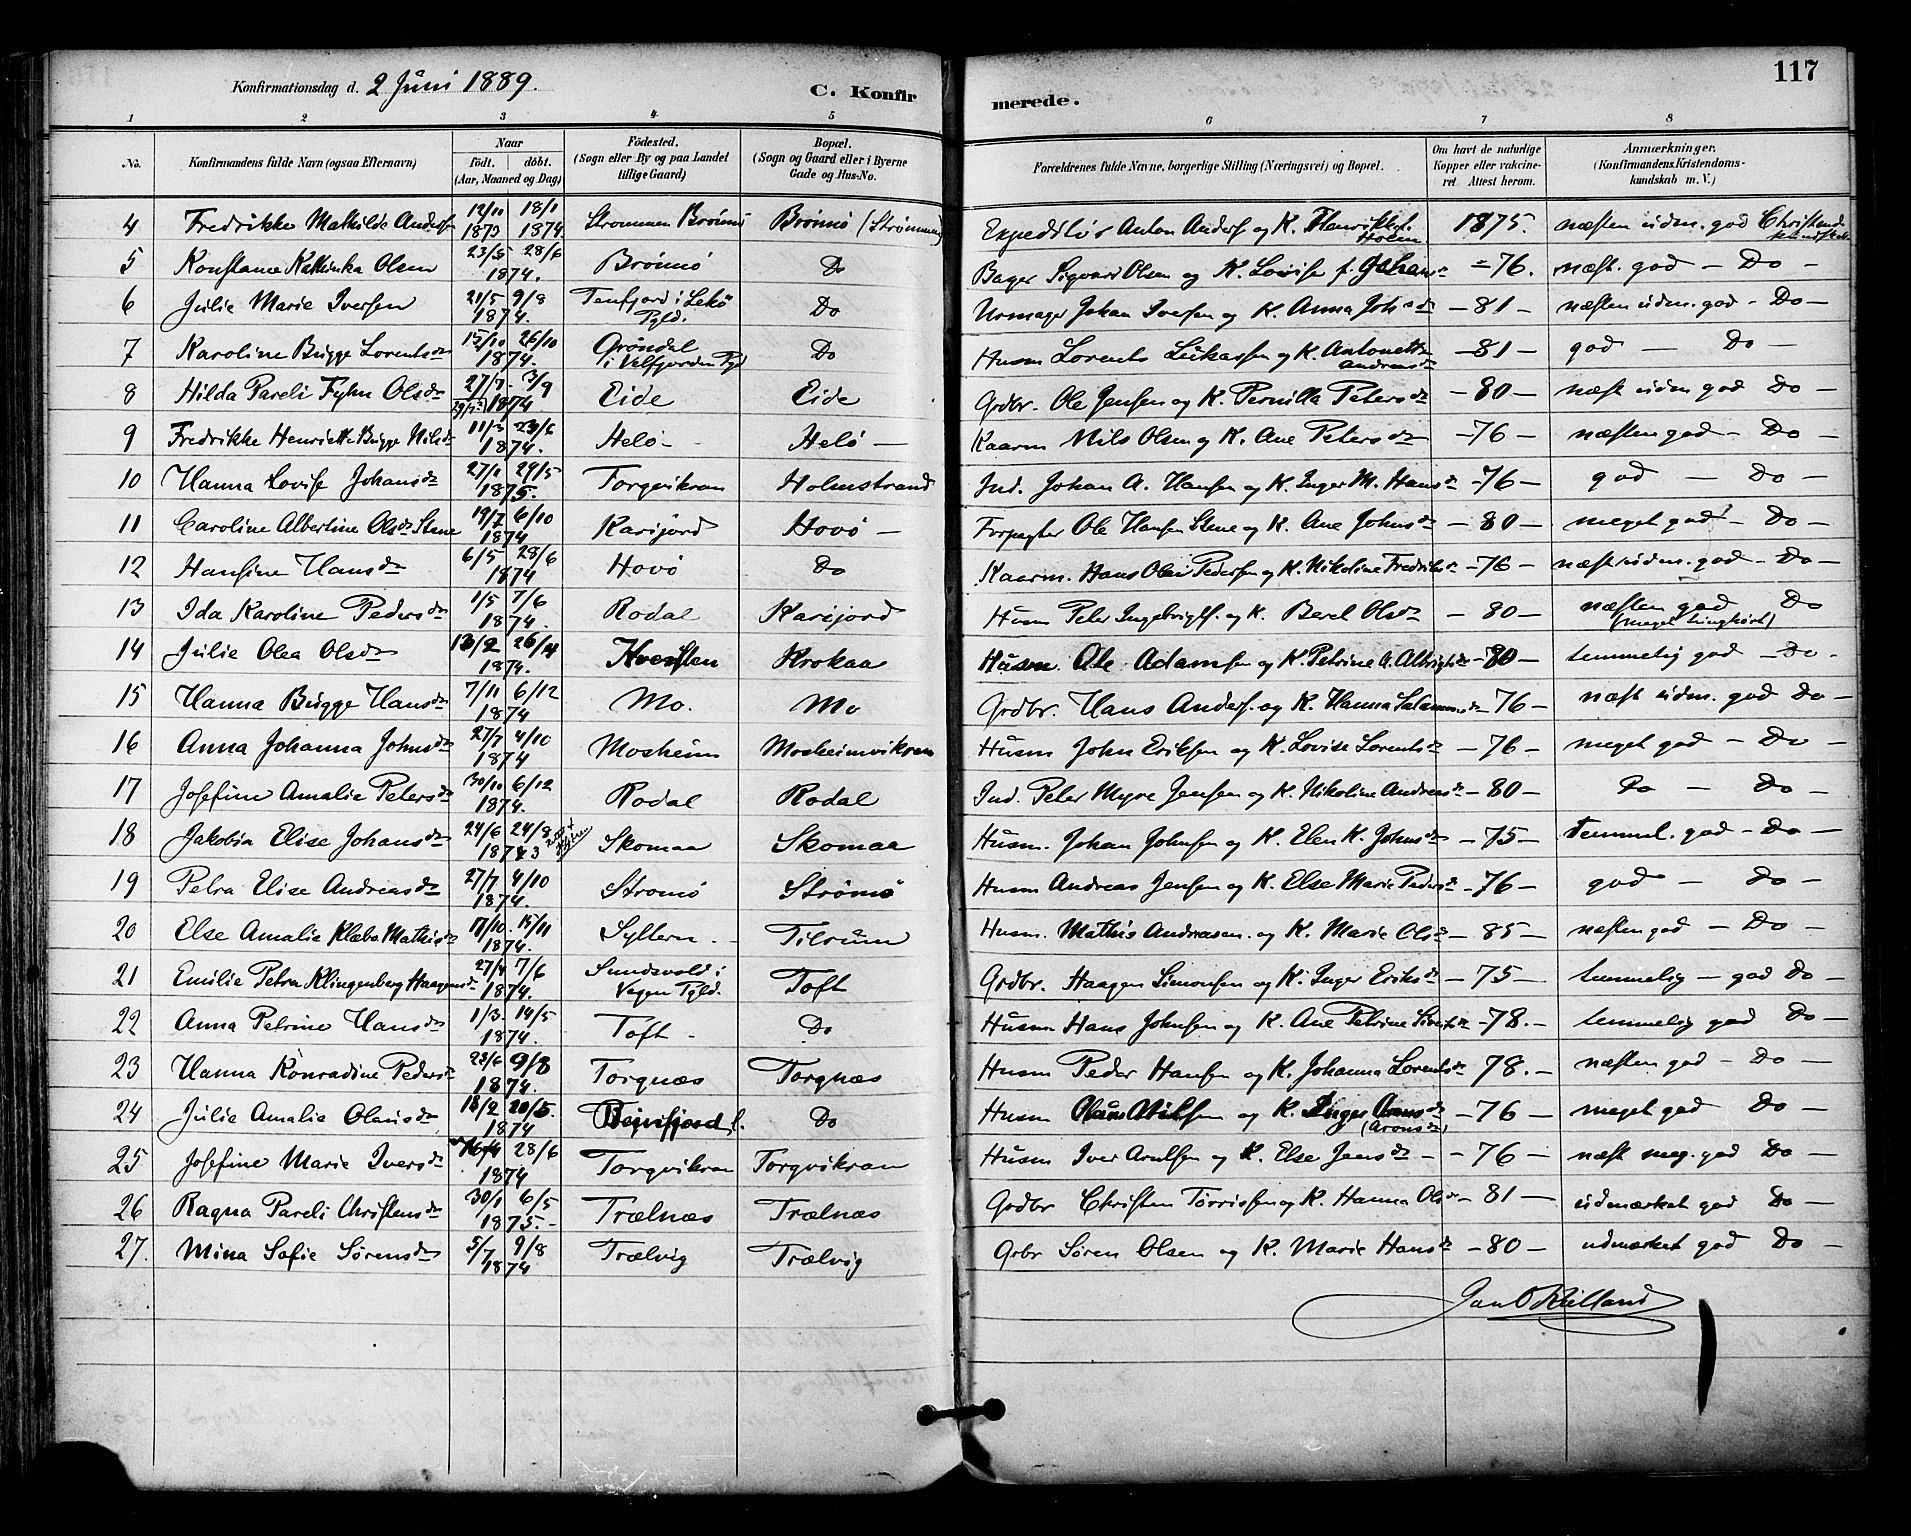 117
Konfirmationsdag d. 2 Juni 1889.
C. Konfirmerede.
1 2 3 4 5 6 7 8
No. Konfirmandens fulde Navn (ogsaa Efternavn) Naar födt. döbt. (Aar, Maaned og Dag) Födested. (Sogn eller By og paa Landet tillige Gaard) Bopæl. (Sogn og Gaard eller i Byerne Gade og Hus-No. Forældrenes fulde Navne, borgerlige Stilling (Næringsvei) og Bopæl. Om havt de naturlige Kopper eller vakcineret Attest herom. Anmærkninger. (Konfirmandens Kristendomskundskab m. V.)
4 Fredrikke Mathilde Anders 12/11 1873 18/1 1874 Strommen Brönnö Brönnö (Strömmen) Expeditör Anton Anders og K. Henrikke f. Holm 1875. næsten udm. god Christend. kundskab
5 Konstance Kathinka Olsen 23/3 28/6 1874. Brönnö Do Bager Sigvard Olsen og K. Lovise f. -76. næst. god - Do -
6 Julie Marie Iversen 21/5 9/8 1874. Tenfjord i Lekö Pgld. Do Urmager Johan Iversen og K. Anna Johsdr -81- næsten udm. god - Do -
7 Karoline Brygge Lorentsdr 15/10 26/10 1874. Gröndal i Velfjorden Pgld Do Husm Lorents Lukassen og K. Antonette Andreasdr -81- god - Do -
8 Hilda Pareli Fyhn Olsdr 27/7 (29/7?) 3/9 1874 Eide Eide Grdbr. Ole Jensen og K. Pernilla Petersdr -80- næst udm god Do -
9 Fredrikke Henriette Brygge Nilsdr 11/3 23/6 1874. Helö - Helö - Kaarm Nils Olsen og K. Ane Petersdr -76- næsten god - Do -
10 Hanna Lovise Johansdr 27/1 29/5 1875. Torgvikran Holmstrand Ind. Johan A. Hansen og K. Inger M. Hansdr -76- god - Do -
11 Caroline Albertine Olsdr Stene 19/7 6/10 1874 Karijord Hovö - Forpagter Ole Hansen Stene og K. Ane Johnsdr -80- meget god - Do -
12 Hansine Hansdr 6/5 28/6 1874 Hovö Do Kaarm. Hans Olai Pedersen og K. Nikoline Fredriksdr -76- næst udm. god - Do -
13 Ida Karoline Pedersdr 1/5 7/6 1874. Rodal Karijord Husm Peter Ingebrigts. og K. Beret Olsdr -80- næsten god Do (meget tunghört)
14 Julie Olea Olsdr 13/2 26/4 1874. Krokaa Husm. Ole Adamsen og K. Petrine A. Albrigtsdr -80- temmelig god - Do -
15 Hanna Brygge Hansdr 7/11 6/12 1874 Mo. Mo Grdbr. Hans Anders. og K. Hanna Salamonsdr -76- næst udm. god Do -
16 Anna Johanna Johnsdr 27/7 4/10 1874 Mosheim Mosheimvikran Husm John Eriksen og K. Lovise Lorentsdr -76- meget god - Do -
17 Josefine Amalie Petersdr 30/10 6/12 1874. Rodal Rodal Ind. Peter Myre Jensen og K. Nikoline Andreasdr -80- Do - Do -
18 Jakobin Elise Johansdr 24/6 24/8 1873 Skomaa Skomaa Husm. Johan Johnsen og K. Elen K. Johnsdr -75- Temmel. god - Do -
19 Petra Elise Andreasdr 27/7 4/10 1874. Stromö Strömö Husm Andreas Jensen og K. Else Marie Pedersdr -76- god - Do -
20 Else Amalie Klæbo Mathisdr 17/10. 15/11 1874. Syltern - Tilrum Husm. Mathis Andreasen. og K. Marie Olsdr -85- næsten god - Do -
21 Emilie Petra Klingenberg Haagensdr 27/4 7/6 1874. Sundsvold i Vegen Pgld. Toft Grdbr. Haagen Simonsen og K. Inger Eriksdr -75- temmelig - god Do -
22 Anna Petrine Hansdr 1/3 14/5 1874. Toft - Do Husm Hans Johnsen og K. Ane Petrine Sivertsdr -78.- temmelig god Do -
23 Hanna Konradine Pedersdr 23/6 9/8 1874. Torgnæs Torgnæs Husm Peder Hansen og K. Johanna Lorentsdr 78.- næsten god - Do -
24 Julie Amalie Olausdr 18/2 20/5. 1874 Do Husm Olaus og K. Inger Aronsdr (Aronsdr) -76- meget god Do -
25 Josefine Marie Iversdr 28/6 1874 Torgvikran Torgvikran Husm Iver Arntsen og K. Else Jensdr - -76- næst meg. god Do -
26 Ragna Pareli Christensdr 30/1 6/5 1875.- Trælnæs Trælnæs Grdbr Christen Torrissen og K. Hanna Olsdr -81- udmærket god Do -
27. Mina Sofie Sörensdr 5/7 9/8 1874 Trælvig Trælvig Grbr Sören Olsen og K. Marie Hansdr -80- udmærket god Do -
Jan O Kielland